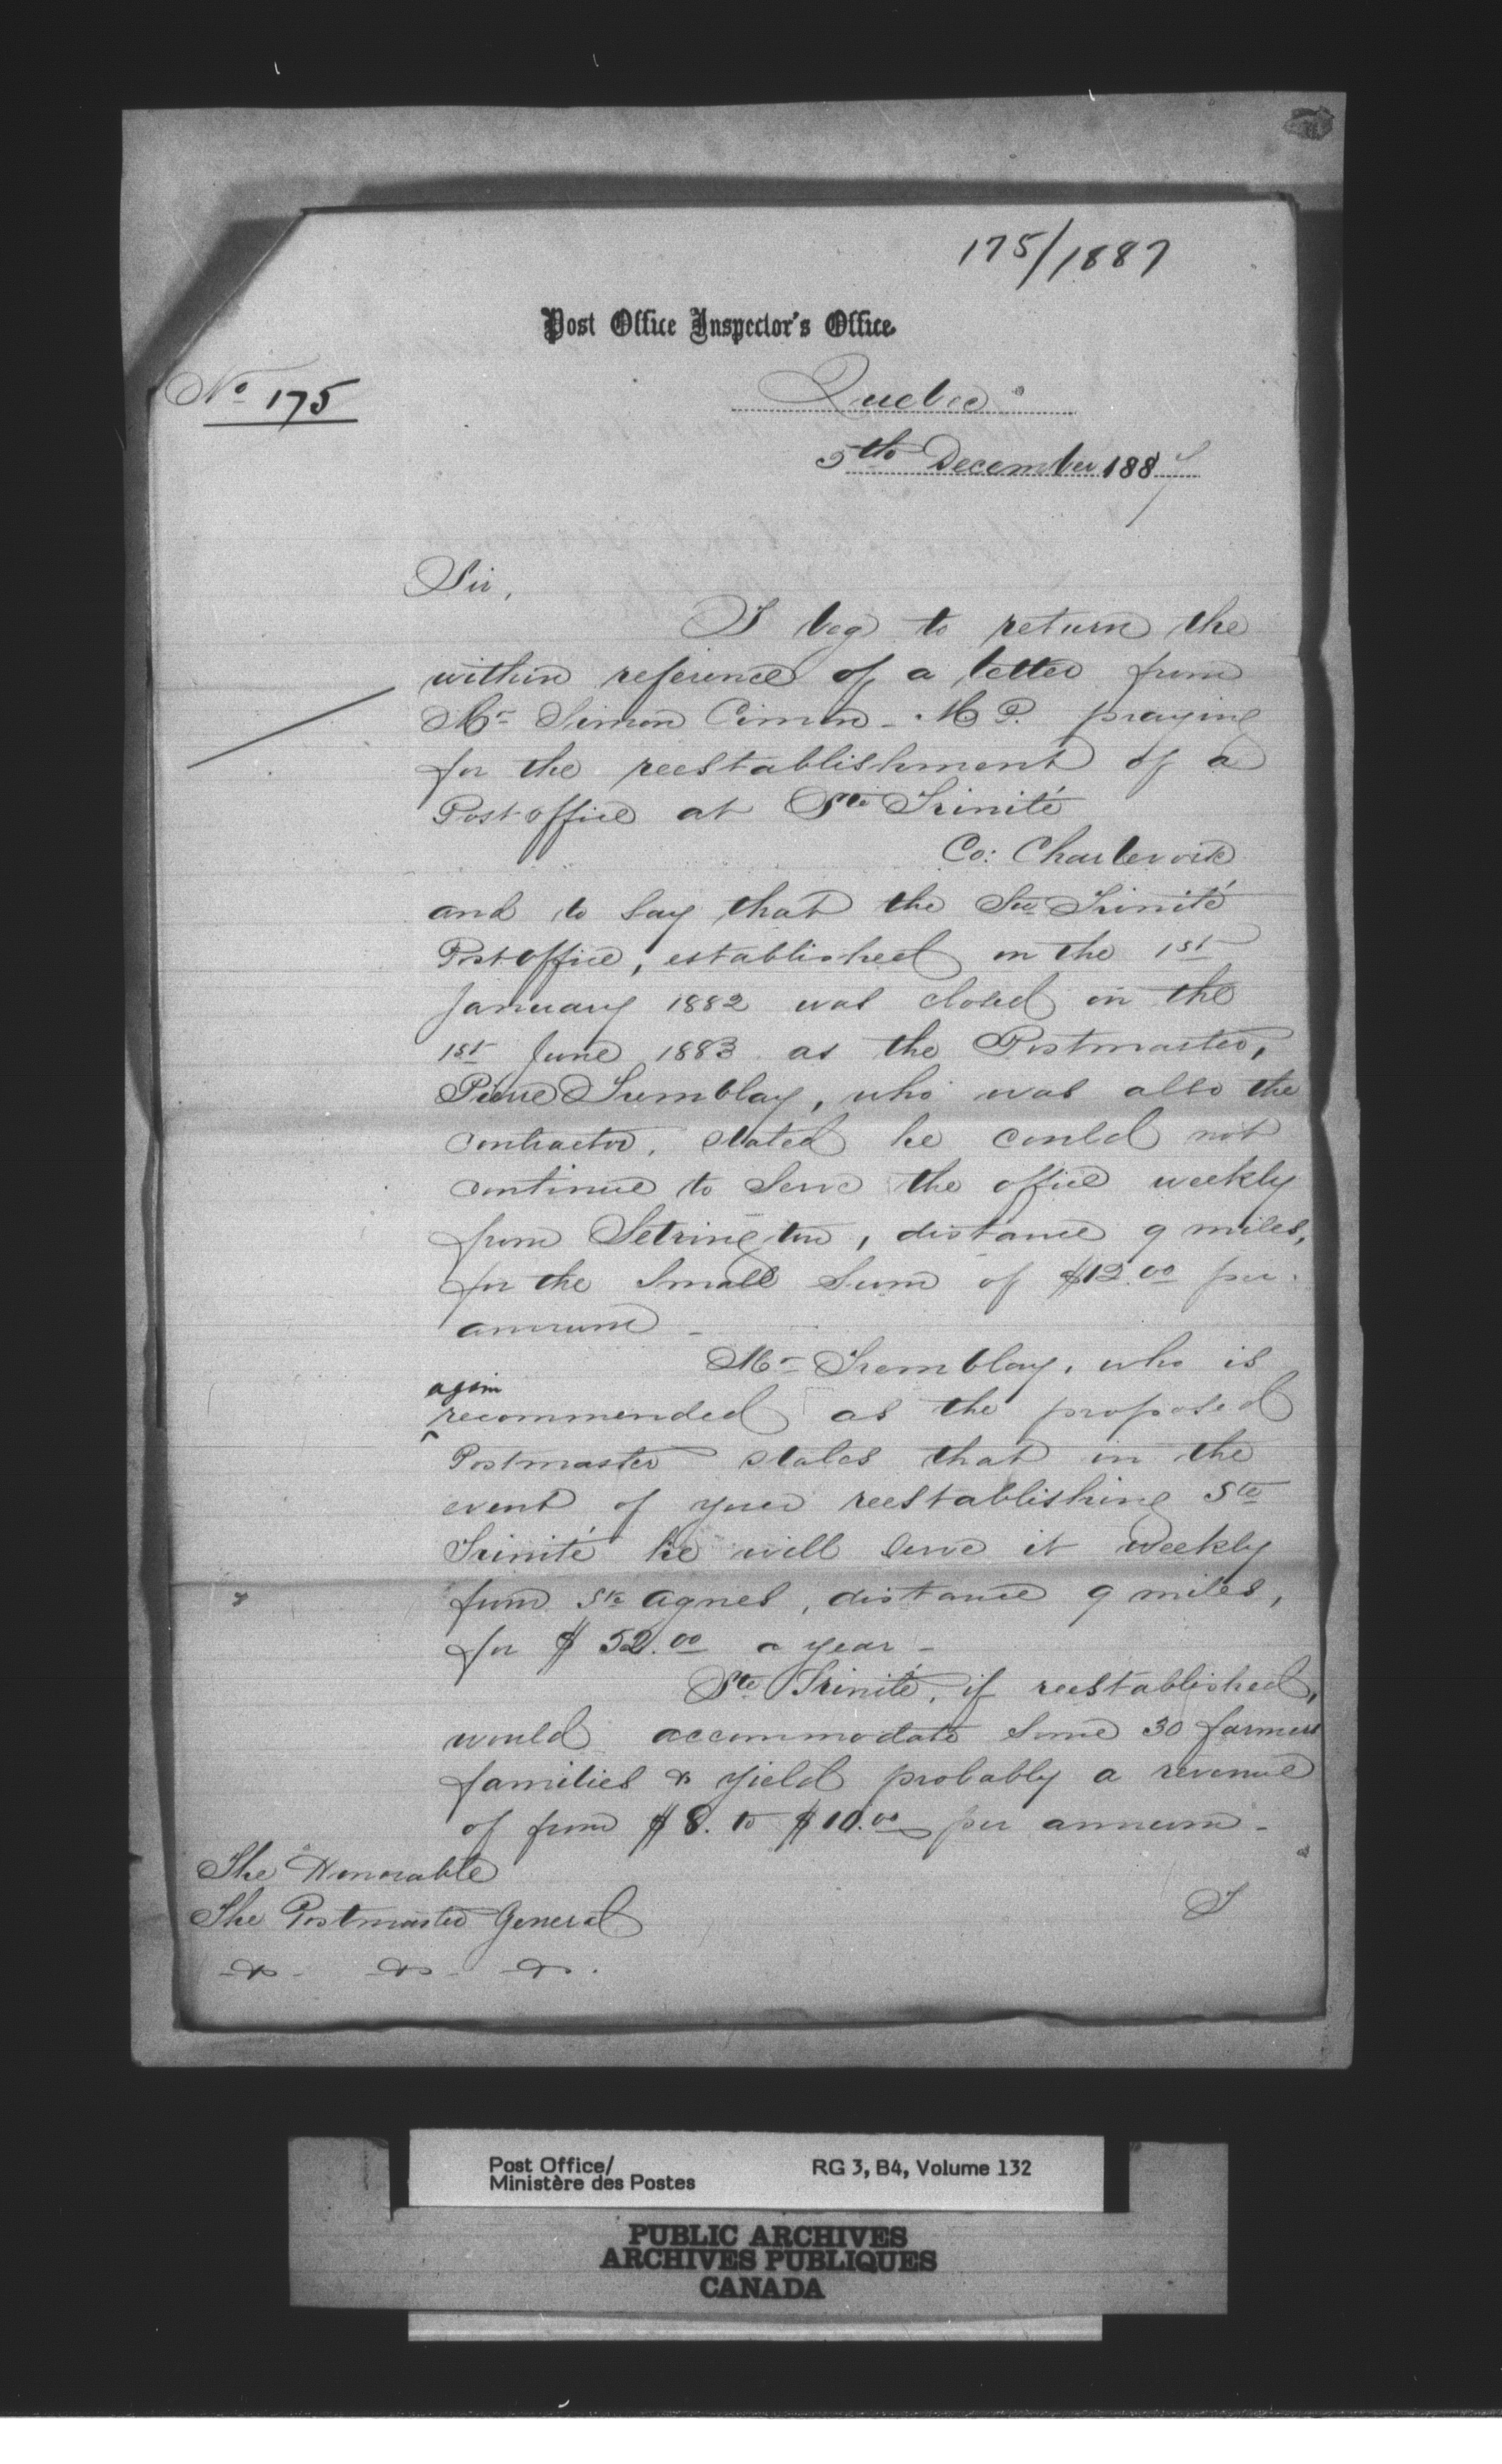 175/1887
Post Office Inspector's Office
No 175
Quebec
5th December 1887
Sir,
I beg to return the
within reference of a letter from
Mr Simon Cimon - M P. praying
for the reestablishment of a
Post office at Ste Trinité
Co: Charlevoix
and to say that the Ste Trinité
Post office, established on the 1st
January 1882 was closed on the
1st June 1883 as the Postmaster,
Pierre Tremblay, who was also the
contractor, stated he could not
continue to serve the office weekly
from Setrington, distance 9 miles,
for the small sum of $12.00 per
annum -
Mr Tremblay, who is
again
recommended as the proposed
Postmaster states that in the
event of your reestablishing Ste
Trinité he will serve it weekly
from Ste Agnes, distance 9 miles,
for $52.00 a year -
Ste Trinité, if reestablished,
would accommodate some 30 farmers
families & yield probably a revenue
of from $8. to $10.00 per annum -
The Honorable
The Postmaster General
I
-&- -&- -&-.
Post Office/
Ministère des Postes
RG 3, B4, Volume 132
PUBLIC ARCHIVES
ARCHIVES PUBLIQUES
CANADA